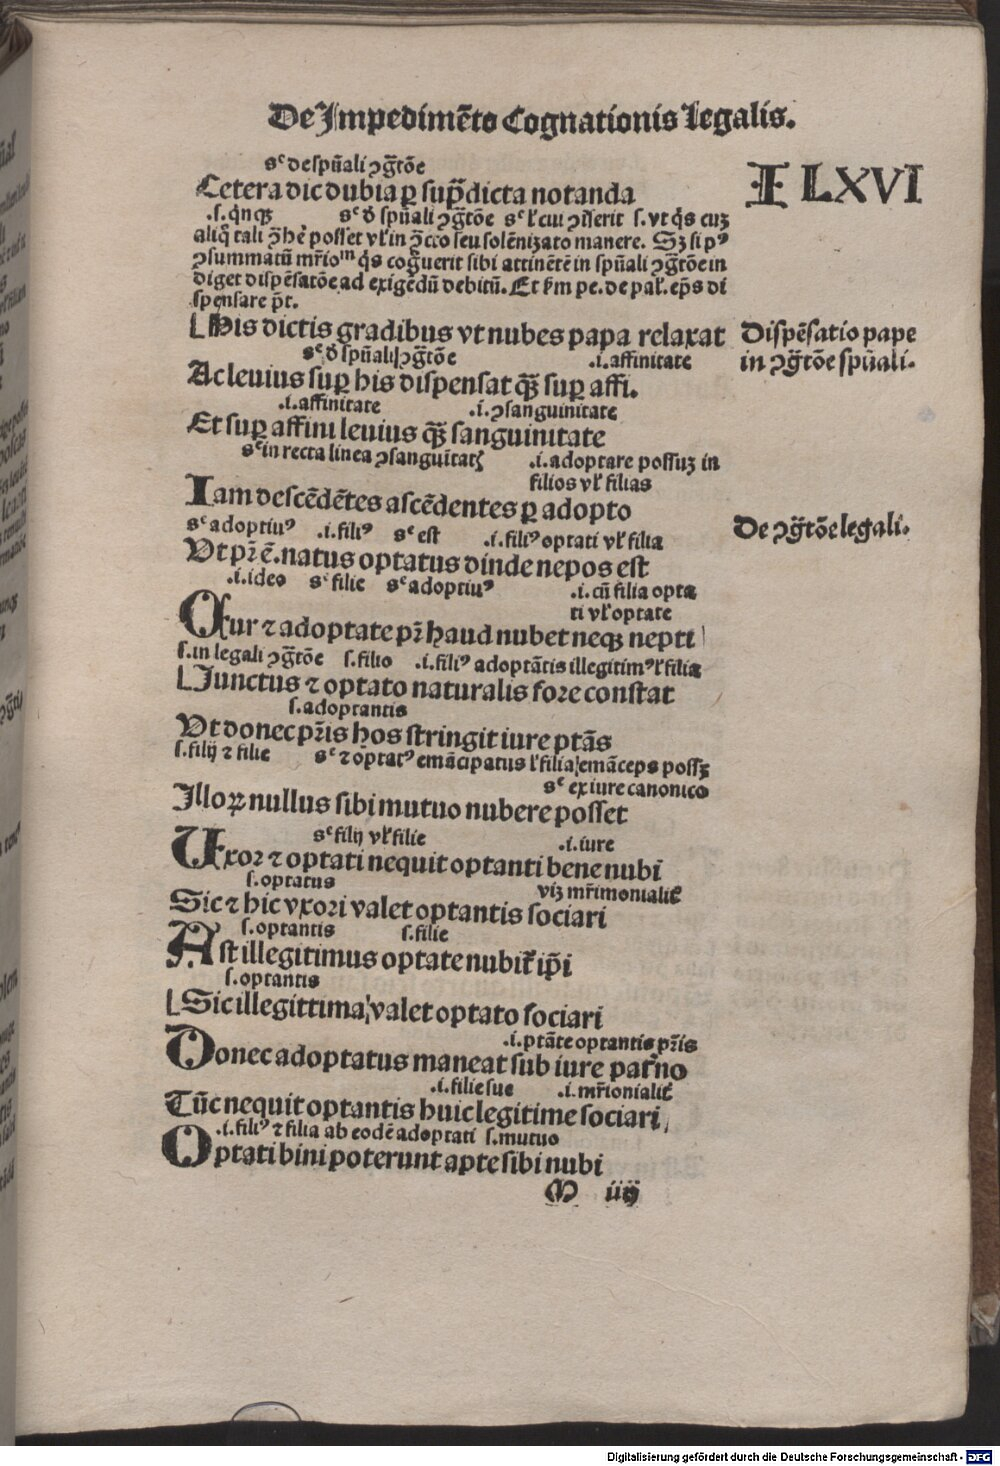 De Impedimẽto Cognationis legalis.
F LXVI
sꝫ de spũali ꝯg̃tõe
Cetera dic dubia ꝑ supͣdicta notanda
.s. q̃nqꝫ sꝫ ð spũali ꝯg̃tõe sꝫ ł cui ꝯserit s. vt q̃s cuꝫ
aliq̃ tali ꝯ̃hẽ posset vł in ꝯ̃cto seu solẽnizato manere. Sꝫ si pꝰ
ꝯsummatũ mr̃ioᵐ q̃s cog̃uerit sibi attinẽtẽ in spũali ꝯg̃tõe in
diget dispẽsatõe ad exigẽdũ debitũ. Et ẜm pe. de pal̓. ep̃s di
spensare p̃t.
His dictis gradibus vt nubes papa relaxat
Dispẽsatio pape
in ꝯg̃tõe spũali.
sꝫ ð spũali ꝯg̃tõe .i. affinitate
Ac leuius suꝑ his dispensat q̃ꝫ suꝑ affi.
.i. affinitate .i. ꝯsanguinitate
Et suꝑ affini leuius q̃ꝫ sanguinitate
sꝫ in recta linea ꝯsanguitatꝭ .i. adoptare possuꝫ in
filios vł filias
Iam descẽdẽtes ascẽdentes ꝑ adopto
De ꝯg̃tõe legali.
sꝫ adoptiuꝰ .i. filiꝰ sꝫ est .i. filiꝰ optati vł filia
Vt pr̃ ẽ. natus optatus dinde nepos est
.i. ideo sꝫ filie sꝫ adoptiuꝰ .i. cũ filia opta
ti vł optate
Qfur ⁊ adoptate pr̃ haud nubet neqꝫ nepti
s. in legali ꝯg̃tõe s. filio .i. filiꝰ adoptãtis illegitimꝰ ł filia
Junctus ⁊ optato naturalis fore constat
s. adoptantis
Vt donec pr̃is hos stringit iure ptãs
s. filij ⁊ filie sꝫ ⁊ optatꝰ emãcipatus ł filia emãceps possꝫ
sꝫ ex iure canonico
Illoꝝ nullus sibi mutuo nubere posset
sꝫ filij vł filie .i. iure
Uxor ⁊ optati nequit optanti bene nubi
s. optatus viꝫ mr̃imonialiť
Sic ⁊ hic vxori valet optantis sociari
s. optantis s. filie
Ast illegitimus optate nubiť ip̃i
s. optantis
Sic illegittima valet optato sociari
.i. ptãte optantis pr̃is
Donec adoptatus maneat sub iure pat̓no
.i. filie sue .i. mr̃ionialiť
Tũc nequit optantis huic legitime sociari
.i. filiꝰ ⁊ filia ab eodẽ adoptati s. mutuo
Optati bini poterunt apte sibi nubi
M iiij
Digitalisierung gefördert durch die Deutsche Forschungsgemeinschaft - DFG